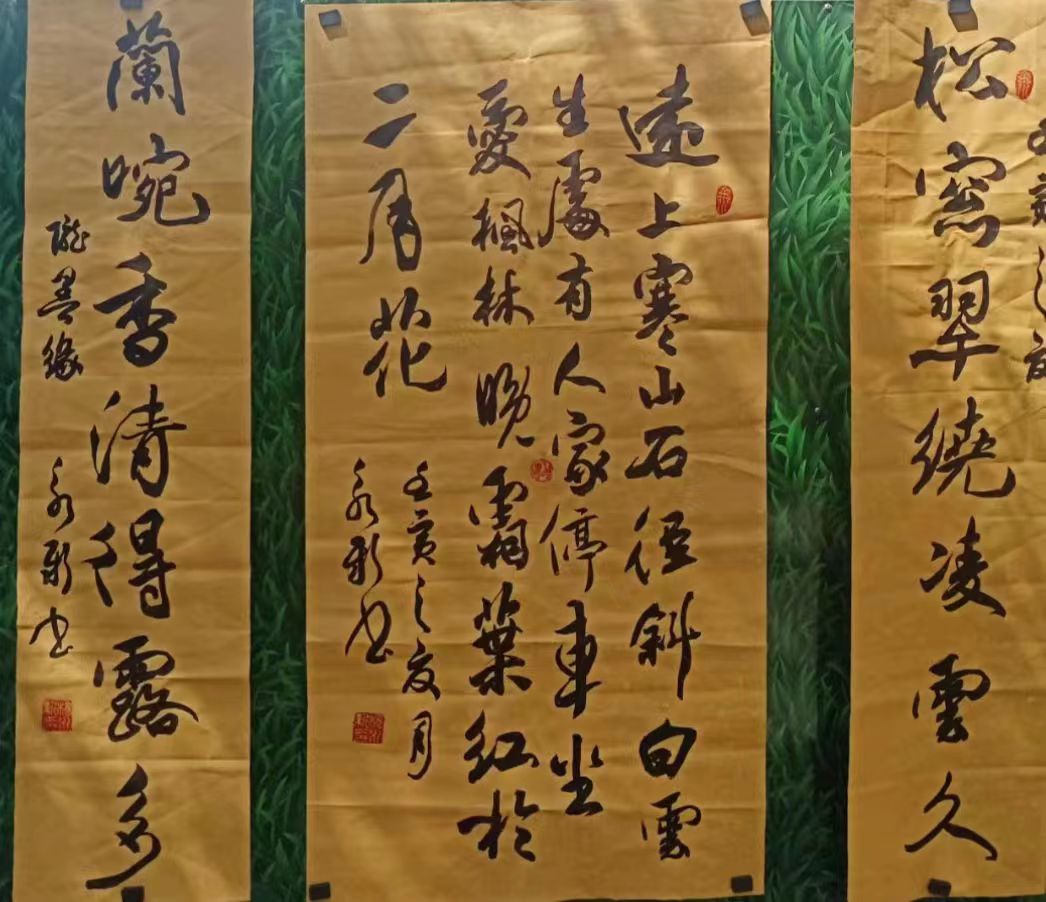 松窓翠繞凌雲久
遠上寒山石徑斜白雲
生處有人家停車坐
愛楓林晚霜葉紅於
二月花
壬寅之夏月
永書
蘭畹香清得露多
隴善緣
永書